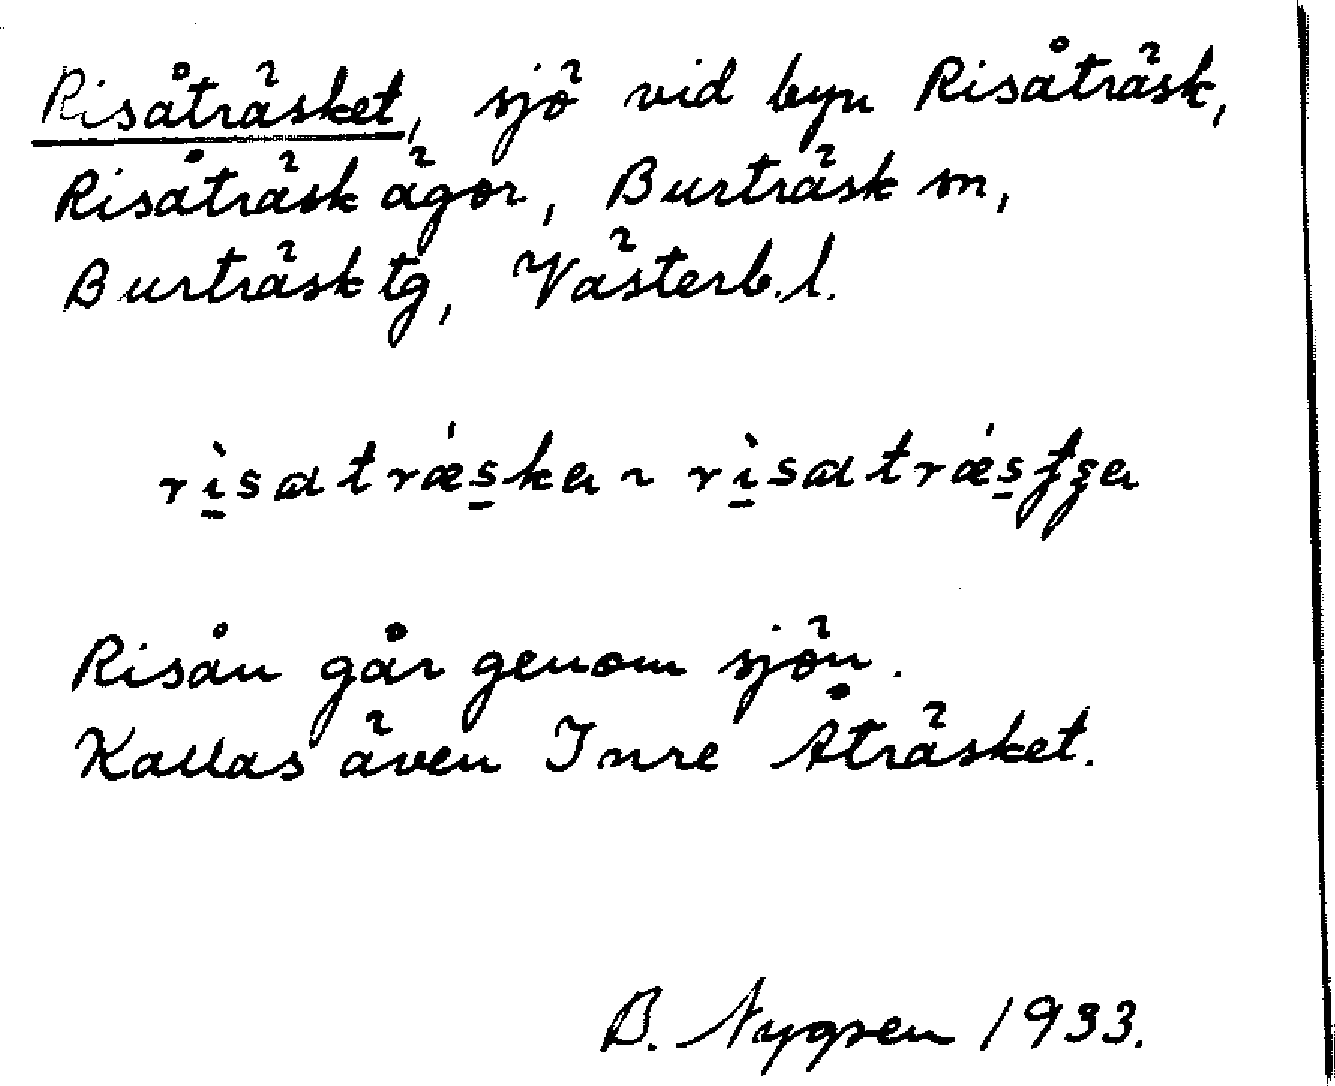 Risåträsket, sjö vid byn Risåträsk,
Risåträsk ägor, Burträsk sn,
Burträsk tg, Västerb. l.
rìsatrǽska ~ rìsatrǽsʈʂa
Risån går genom sjön.
Kallas även Inre Åträsket.
B. Nygren 1933.